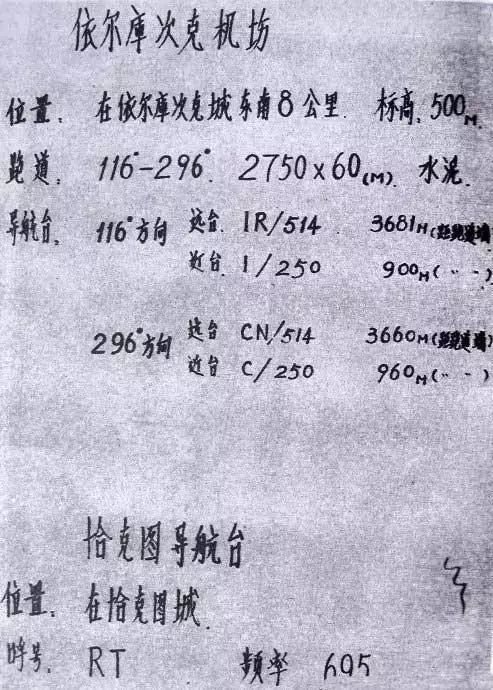 依尔库次克机场
位置. 在依尔库次克城东南8公里. 标高. 500M
跑道. 116°-296° 2750×60(M). 水泥.
导航台. 116°方向 远台. IR/514 3681M(
近台. I/250 900M(〃 〃)
296°方向 远台 CN/514 3660M(
近台 C/250 960M(〃 〃)
恰克图导航台
位置. 在恰克图城.
呼号. RT 频率 605